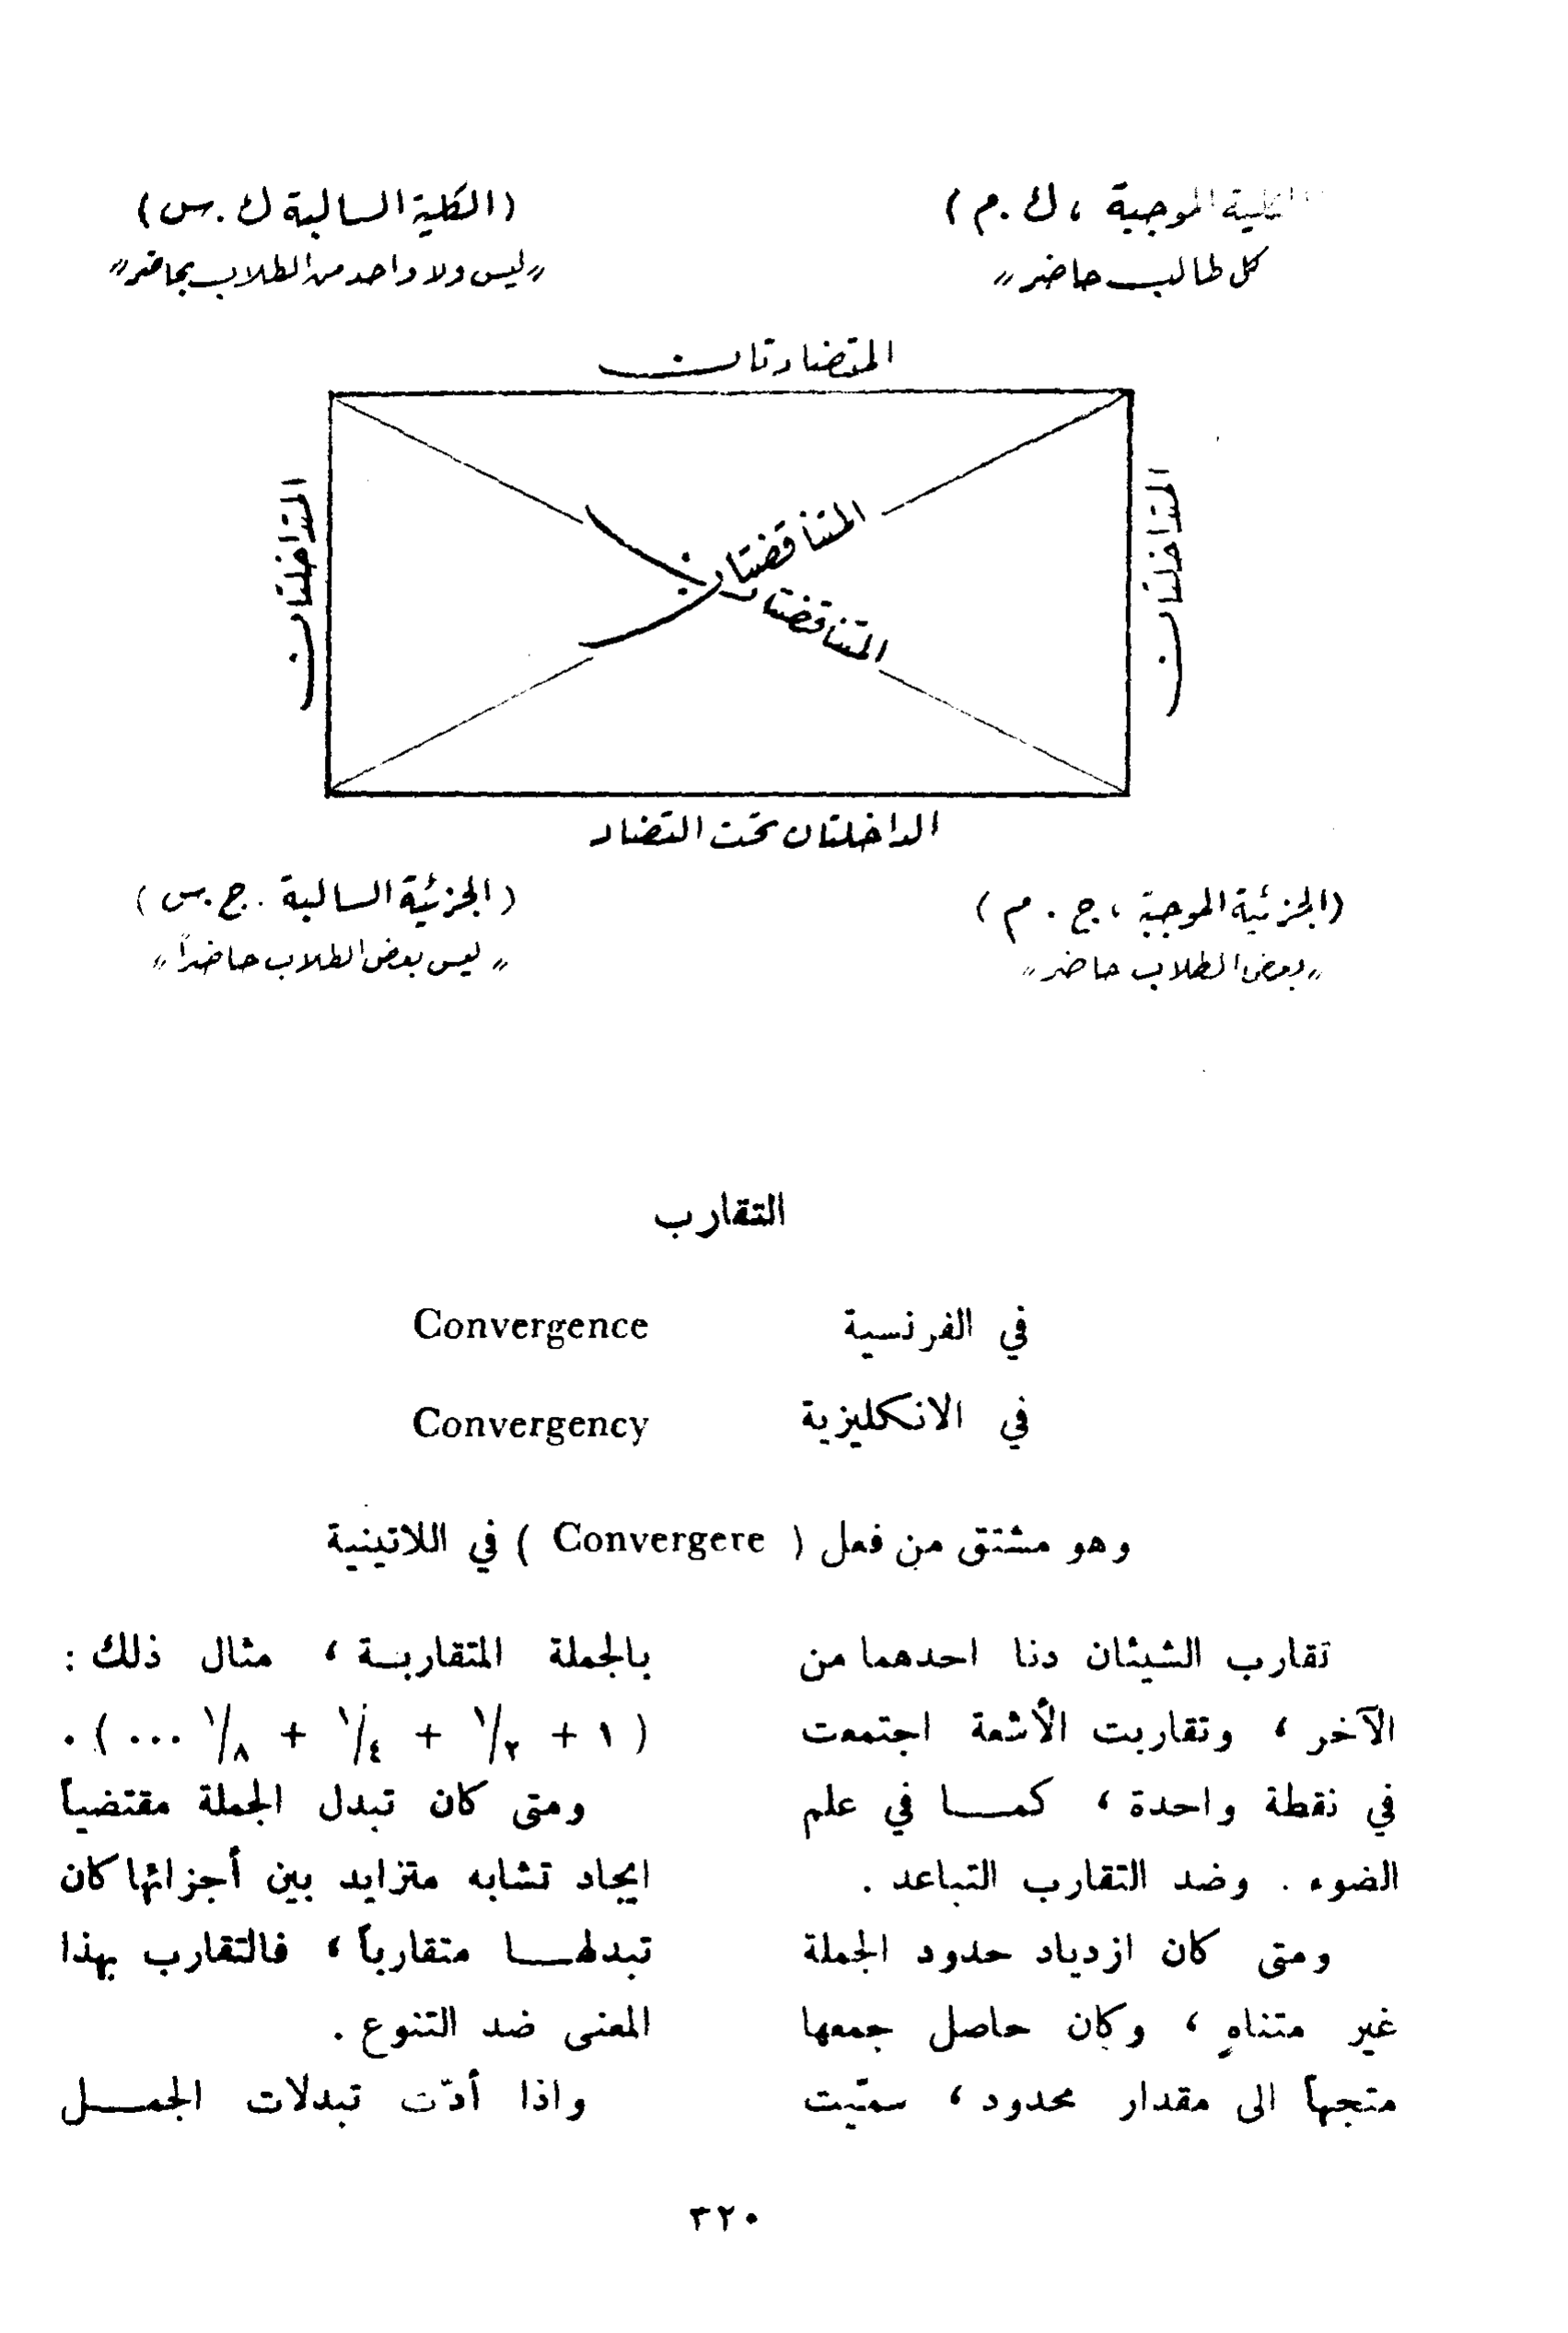 الكلية الموجبة ، ك . م )
كل طالب حاضر »
( الكلية السالبة ك . س )
« ليس ولا واحد من الطلاب بحاضر »
المتضادتان
المتداخلتان
المتناقضتان
المتناقضتان
المتداخلتان
الداخلتان تحت التضاد
( الجزئية الموجبة ، ج . م )
« بعض الطلاب حاضر »
( الجزئية السالبة . ج . س )
« ليس بعض الطلاب حاضراً »
التقارب
في الفرنسية Convergence
في الانكليزية Convergency
وهو مشتق من فعل ( Convergere ) في اللاتينية
تقارب الشيئان دنا احدهما من
الآخر ، وتقاربت الأشعة اجتمعت
في نقطة واحدة ، كمـا في علم
الضوء . وضد التقارب التباعد .
ومتى كان ازدياد حدود الجملة
غير متناهٍ ، وكان حاصل جمعها
متجهاً الى مقدار محدود ، سمّيت
بالجملة المتقاربـة ، مثال ذلك :
( ١ + ١/٢ + ١/٤ + ١/٨ ... ) .
ومتى كان تبدل الجملة مقتضياً
ايجاد تشابه متزايد بين أجزائها كان
تبدلهـا متقارباً ، فالتقارب بهذا
المعنى ضد التنوع .
واذا أدّت تبدلات الجمـل
٣٢٠